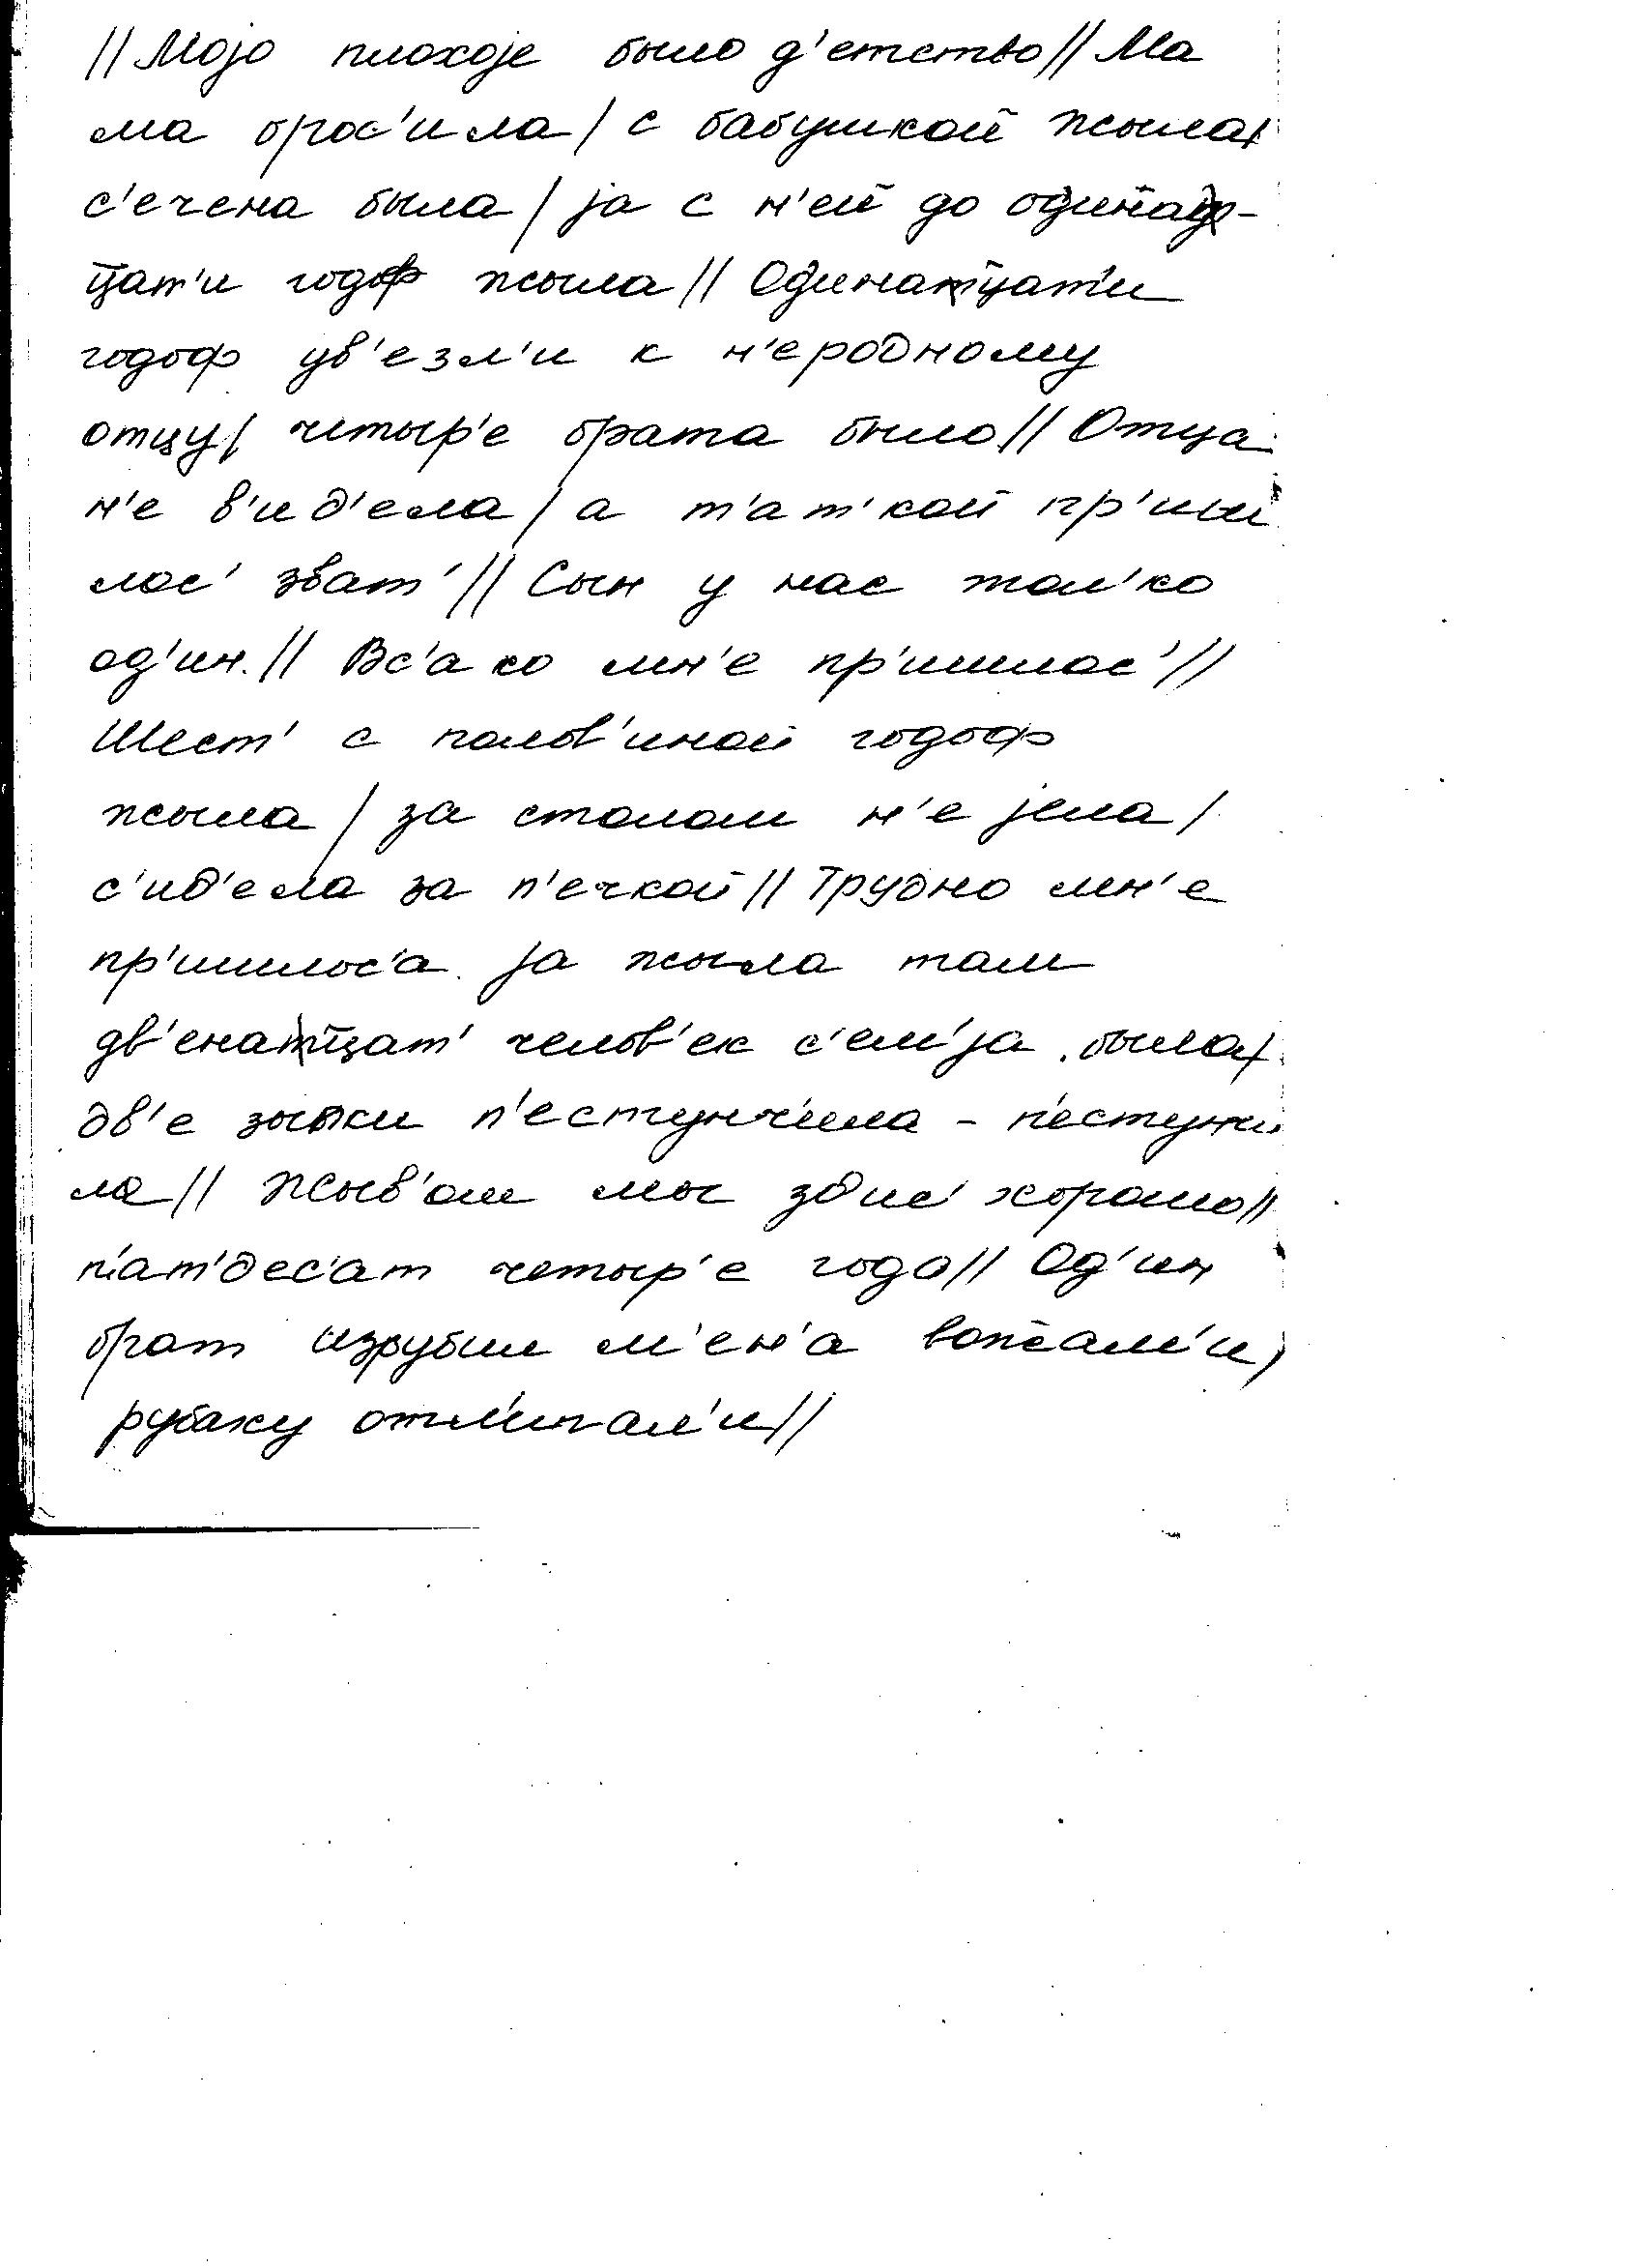 // Моjо плохоjе было д'етство // Ма
ма брос'ила / с бабушкой жыла /
с'ечена была / jа с н'ей до одинад-
цат'и годоф жыла // Одинатцат'и
годоф ув'езл'и к н'еродному
отцу / четыр'е брата было // Отца
н'е в'ид'ела / а т'ат'кой пр'иш
лос' зват' // Сын у нас тол'ко
од'ин. // Вс'ако мн'е пр'ишлос' //
Шест' с полов'иной годоф
жыла / за столом н'е jела /
с'ид'ела за п'ечкой // Трудно мн'е
пр'ишлос'а. jа жыла там
дв'енатцат' челов'ек с'ем'jа была /
дв'е зыпки п'естун'чила - п'естун'чи
ла // Жыв'ом мы здис' хорошо //
п'ат'дес'ат четыр'е года // Од'ин
брат изрубил м'ен'а
рубаху